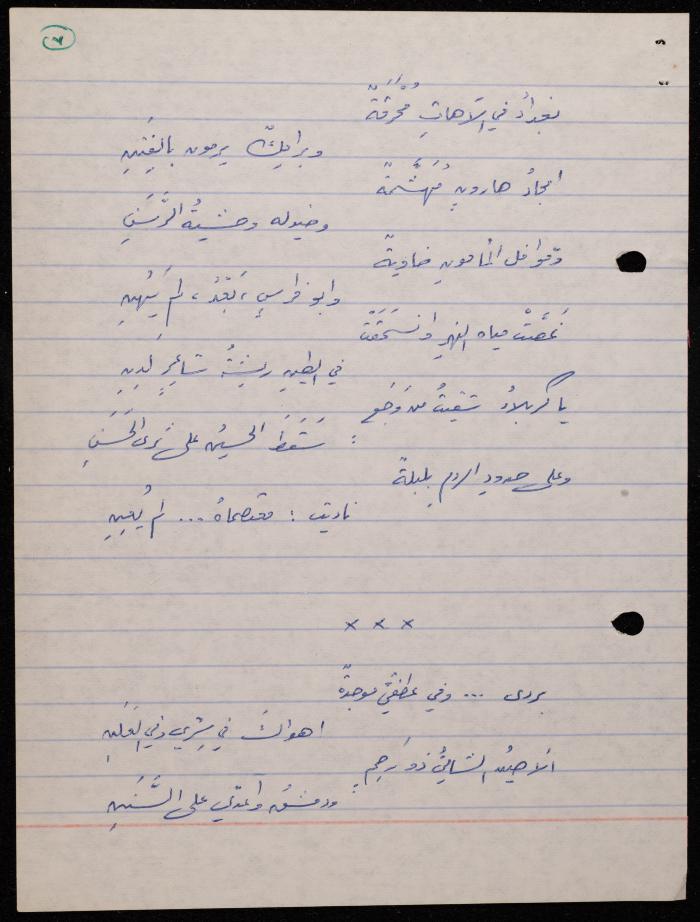 ٧
بغدادُ في الآهاتِ مُحرَّقَةٌ
وبرامِكٌ يرمون بالفِتَنِ
امجادُ هارونٍ مُهَشَّمَةٌ
وخيوله وحشيةُ الرَّسَنِ
وقوافل المأمون خاويةٌ
وابو فراسٍ، بَعْدُ، لم يَهُنِ
غَصَّتْ مياه النهرِ وانسَحَقَتْ
في الطينِ ريشةُ شاعرٍ لَدِنِ
يا كربلاءُ شقيتُ من وَجَعٍ
سَقَطَ الحسينُ على ثرى الحَسَنِ
وعلى حدودِ الرومِ بلبلةٌ
ناديتُ : معتصماهُ ... لم يُعِنِ
× × ×
بردى ... وفي عطفيَّ موجدةٌ
اهواكَ في سِرّي وفي العَلَنِ
الشآميُّ ذو رَحِمٍ
ودمشقُ على السَّنَنِ